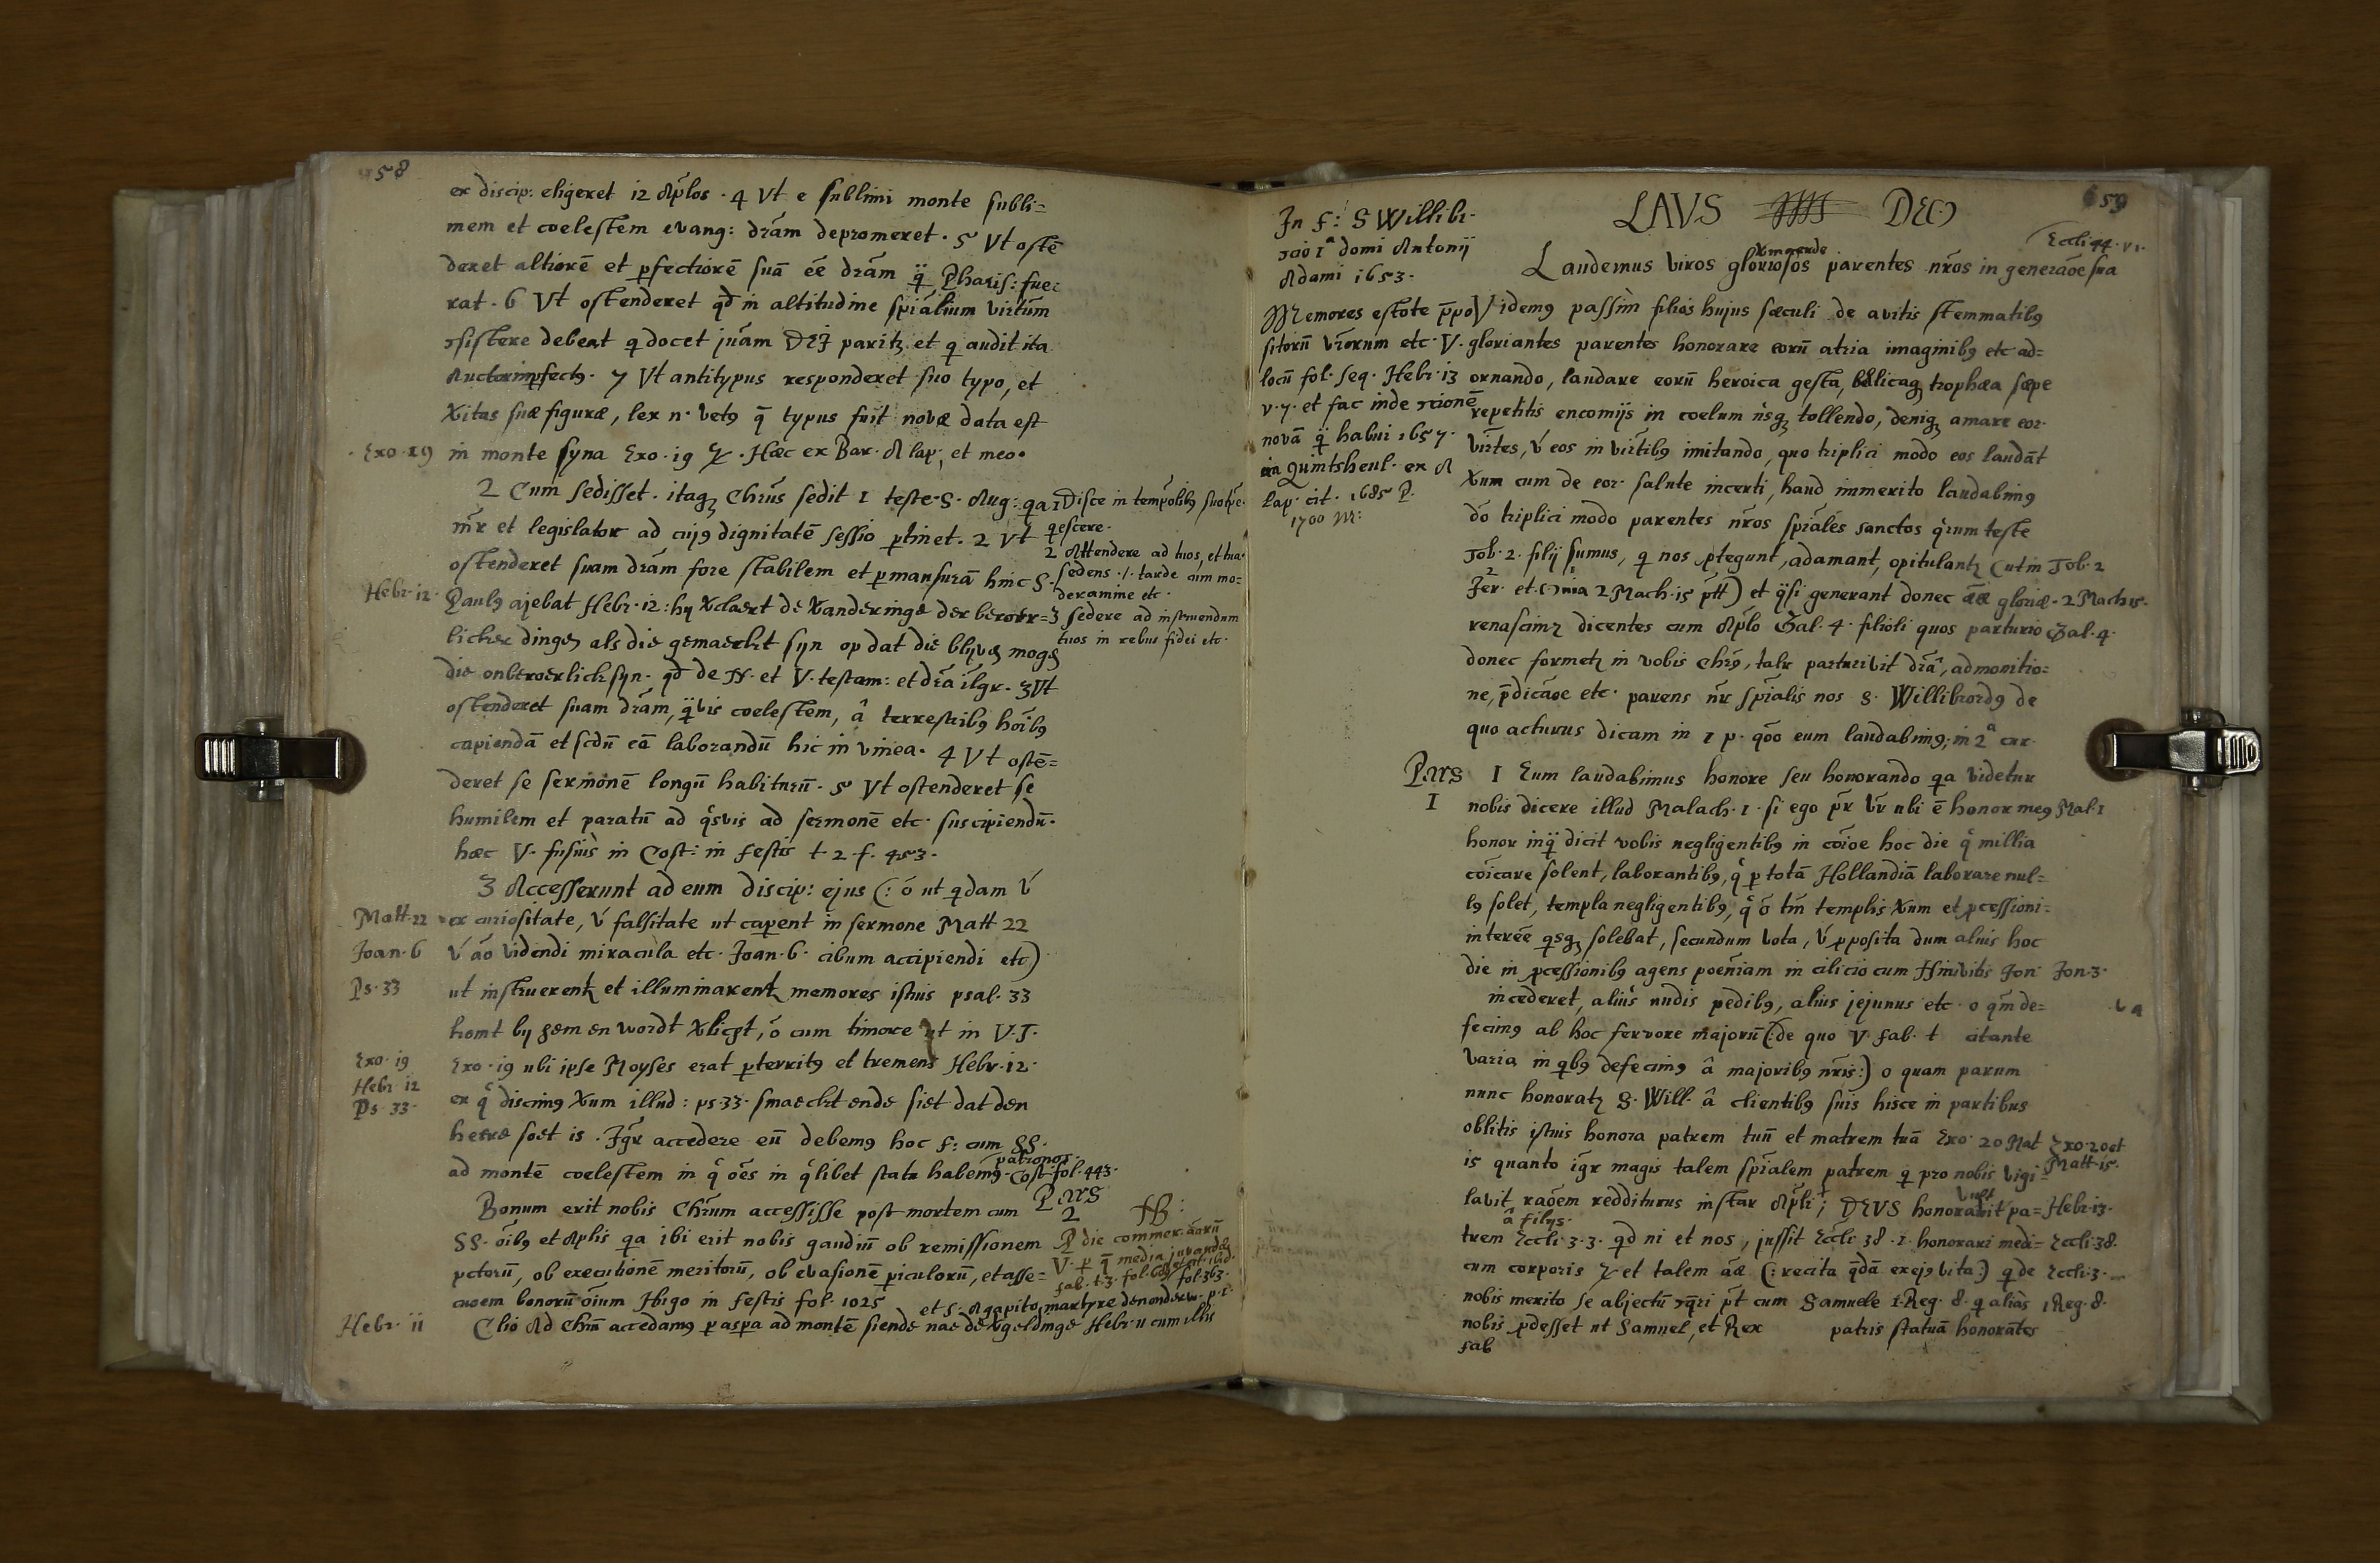 58
ex discip: eligeret 12 Aplos · 4 Vt e sublimi monte subli=
mem et coelestem evang: dram depromeret · 5 Vt ostē
deret altiorē et pfectiorē suā eē dram q̄ Pharis: fue=
rat · 6 Vt ostenderet qd in altitudine spiālium virtum
sistere debeat q docet juam DEI parit et q audit ita
7 Vt antitypus responderet suo typo, et
suæ figuræ, lex n · vet9 q̄ typus fuit novæ data est
Exo · 19
in monte syna Exo · 19 · Hæc ex Bar · A lap, et meo ·
2 Cum sedisset · itaq Chrus sedit 1 teste · S · Aug: qa
1 Disce in
mr et legislator ad cuj9 dignitatē sessio ptinet · 2 Vt
qescere ·
ostenderet suam dram fore stabilem et pmansurā hinc S ·
2 Attendere ad tuos, et tua
sedens ·/· tarde cum mo=
deramine etc ·
Hebr · 12 ·
Paul9 ajebat Hebr · 12: hy Xclaert de Xanderinge der beroer=
3 sedere ad instruendum
tuos in rebus fidei etc ·
licker dingē als die gemaeckt syn op dat die blyvē mogē
die onberoerlick syn · qd de N · et V · testam: et drā ilgr · 3 Vt
ostenderet suam dram, qvis coelestem, â terrestrib9 hoib9
capiendā et scdū eā laborandū hic in vinea · 4 Vt ostē=
deret se sermonē longū habiturū · 5 Vt ostenderet se
humilem et paratū ad qsvis ad sermonē etc · suscipiendū ·
hæc V · fusius in Cost: in festis t · 2 · f · 453 ·
3 Accesserunt ad eum discip: ejus (: ō ut qdam v́
Matt · 22
ex curiositate, v́ falsitate ut caperent in sermone Matt 22
Joan · 6
v́ aō videndi miracula etc · Joan · 6 · cibum accipiendi etc)
Ps · 33
ut instruerent et illuminarent memores istius psal · 33
komt by hem en wordt Xlicht, ō cum timore ut in V · T ·
Exo · 19
Exo · 19 ubi ipse Moyses erat pterrit9 et tremens Hebr · 12 ·
Hebr · 12
Ps · 33 ·
ex q discim9 Xum illud: ps · 33 · smaeckt ende siet dat den
heere soet is · Igr accedere eū debem9 hoc f: cum SS ·
patronos ·
ad montē coelestem in q oēs in qlibet statu habem9 · Cost · fol · 443 ·
Bonum erit nobis Chrum accessisse post mortem cum
Pars
2
NB:
SS · oib9 et Aplis qa ibi erit nobis gaudiū ob remissionem
P die commer · aīarū
pctorū, ob executionē meritorū, ob evasionē piculorū, et asse=
V · p q̄ media juvandæ
cuoem bonorū oium Hugo in festis fol · 1025
et S · Agapito martyre
Hebr · 11
Clio Ad Chm accedam9 p aspa ad montē siende nae de Xgeldinge Hebr · 11 cum illis
159
LAVS DEO
In f: S Willibr ·
1a domi Antonij
Adami 1653 ·
Eccli 44 · v 1 ·
Xmaerde
Laudemus viros gloriosos parentes nros in generaōe sua
Memores estote ppo
sitorū vrorum etc · V ·
locū fol · seq · Hebr · 13
v · 7 · et fac inde
novā q̄ habui 1657 ·
Quintsheul · ex A
lap · cit · 1685 P ·
1700 M:
Videm9 passim filios hujus sæculi de avitis stemmatib9
gloriantes parentes honorare eorū atria imaginib9 etc ad=
ornando, laudare eorū heroica gesta, bellicaq trophæa sæpe
repetitis encomijs in coelum usq tollendo, deniq amare eor ·
virtes, v́ eos in virtib9 imitando, quo triplici modo eos laudāt
Xum cum de eor · salute incerti, haud immerito laudabim9
dō triplici modo parentes nros spiāles sanctos qrum teste
Tob · 2 · filij sumus, q nos ptegunt, adamant, opitulant (ut in
Tob · 2
Jer · et Onia 2 Mach · 15 ptt) et qsi generant donec gloriæ
2 Mach 15 ·
renascimr dicentes cum Aplo Gal · 4 · filioli quos parturio
Gal · 4 ·
donec formet in vobis Chrs, talr parturivit drā, admonitio=
ne, pdicaōe etc · parens nr spialis nos S · Willibrord9 de
quo acturus dicam in 1 p · qōo eum laudabim9; in 2a cur
Pars
I
1 Eum laudabimus honore seu honorando qa videtur
nobis dicere illud Malach · 1 · si ego pr vr ubi ē honor me9
Mal · 1
honor inq dicit vobis negligentib9 in coioe hoc die q millia
coicare solent, laborantib9, q p totā Hollandiā laborare nul=
l9 solet, templa negligentib9, q ō tm templis Xum et pcessioni=
intereē qsq solebat, secundum vota, v́ pposita dum alius hoc
die in pcessionib9 agens poeniam in cilicio cum Ninivitis Jon
Jon · 3 ·
incederet, alius nudis pedib9, alius jejunus etc · o qm de=
fecim9 ab hoc fervore majorū (: de quo V · fab · t citante
varia in qb9 defecim9 â majorib9 nris:) o quam parum
nunc honorat S · Will · â clientib9 suis hisce in partibus
oblitis istius honora patrem tuū et matrem tuā Exo · 20 Mat
Exo · 20 et
Matt · 15 ·
is quanto igr magis talem spialem patrem q pro nobis vigi=
lavit raōem redditurus instar Apli; DEVS honoravit pa=
vult
Hebr · 13 ·
â filijs ·
trem Eccli · 3 · 3 · qd ni et nos, jussit Eccli · 38 · 1 · honorari medi=
Eccli · 38 ·
cum corporis et talem aæ (: recita qdā ex ej9 vita:) q de
Eccli · 3 ·
nobis merito se abjectū qri pt cum Samuele 1 · Reg · 8 · q alias
1 Reg · 8 ·
nobis pdesset ut Samuel, et Rex patris statuā honorātes
fab